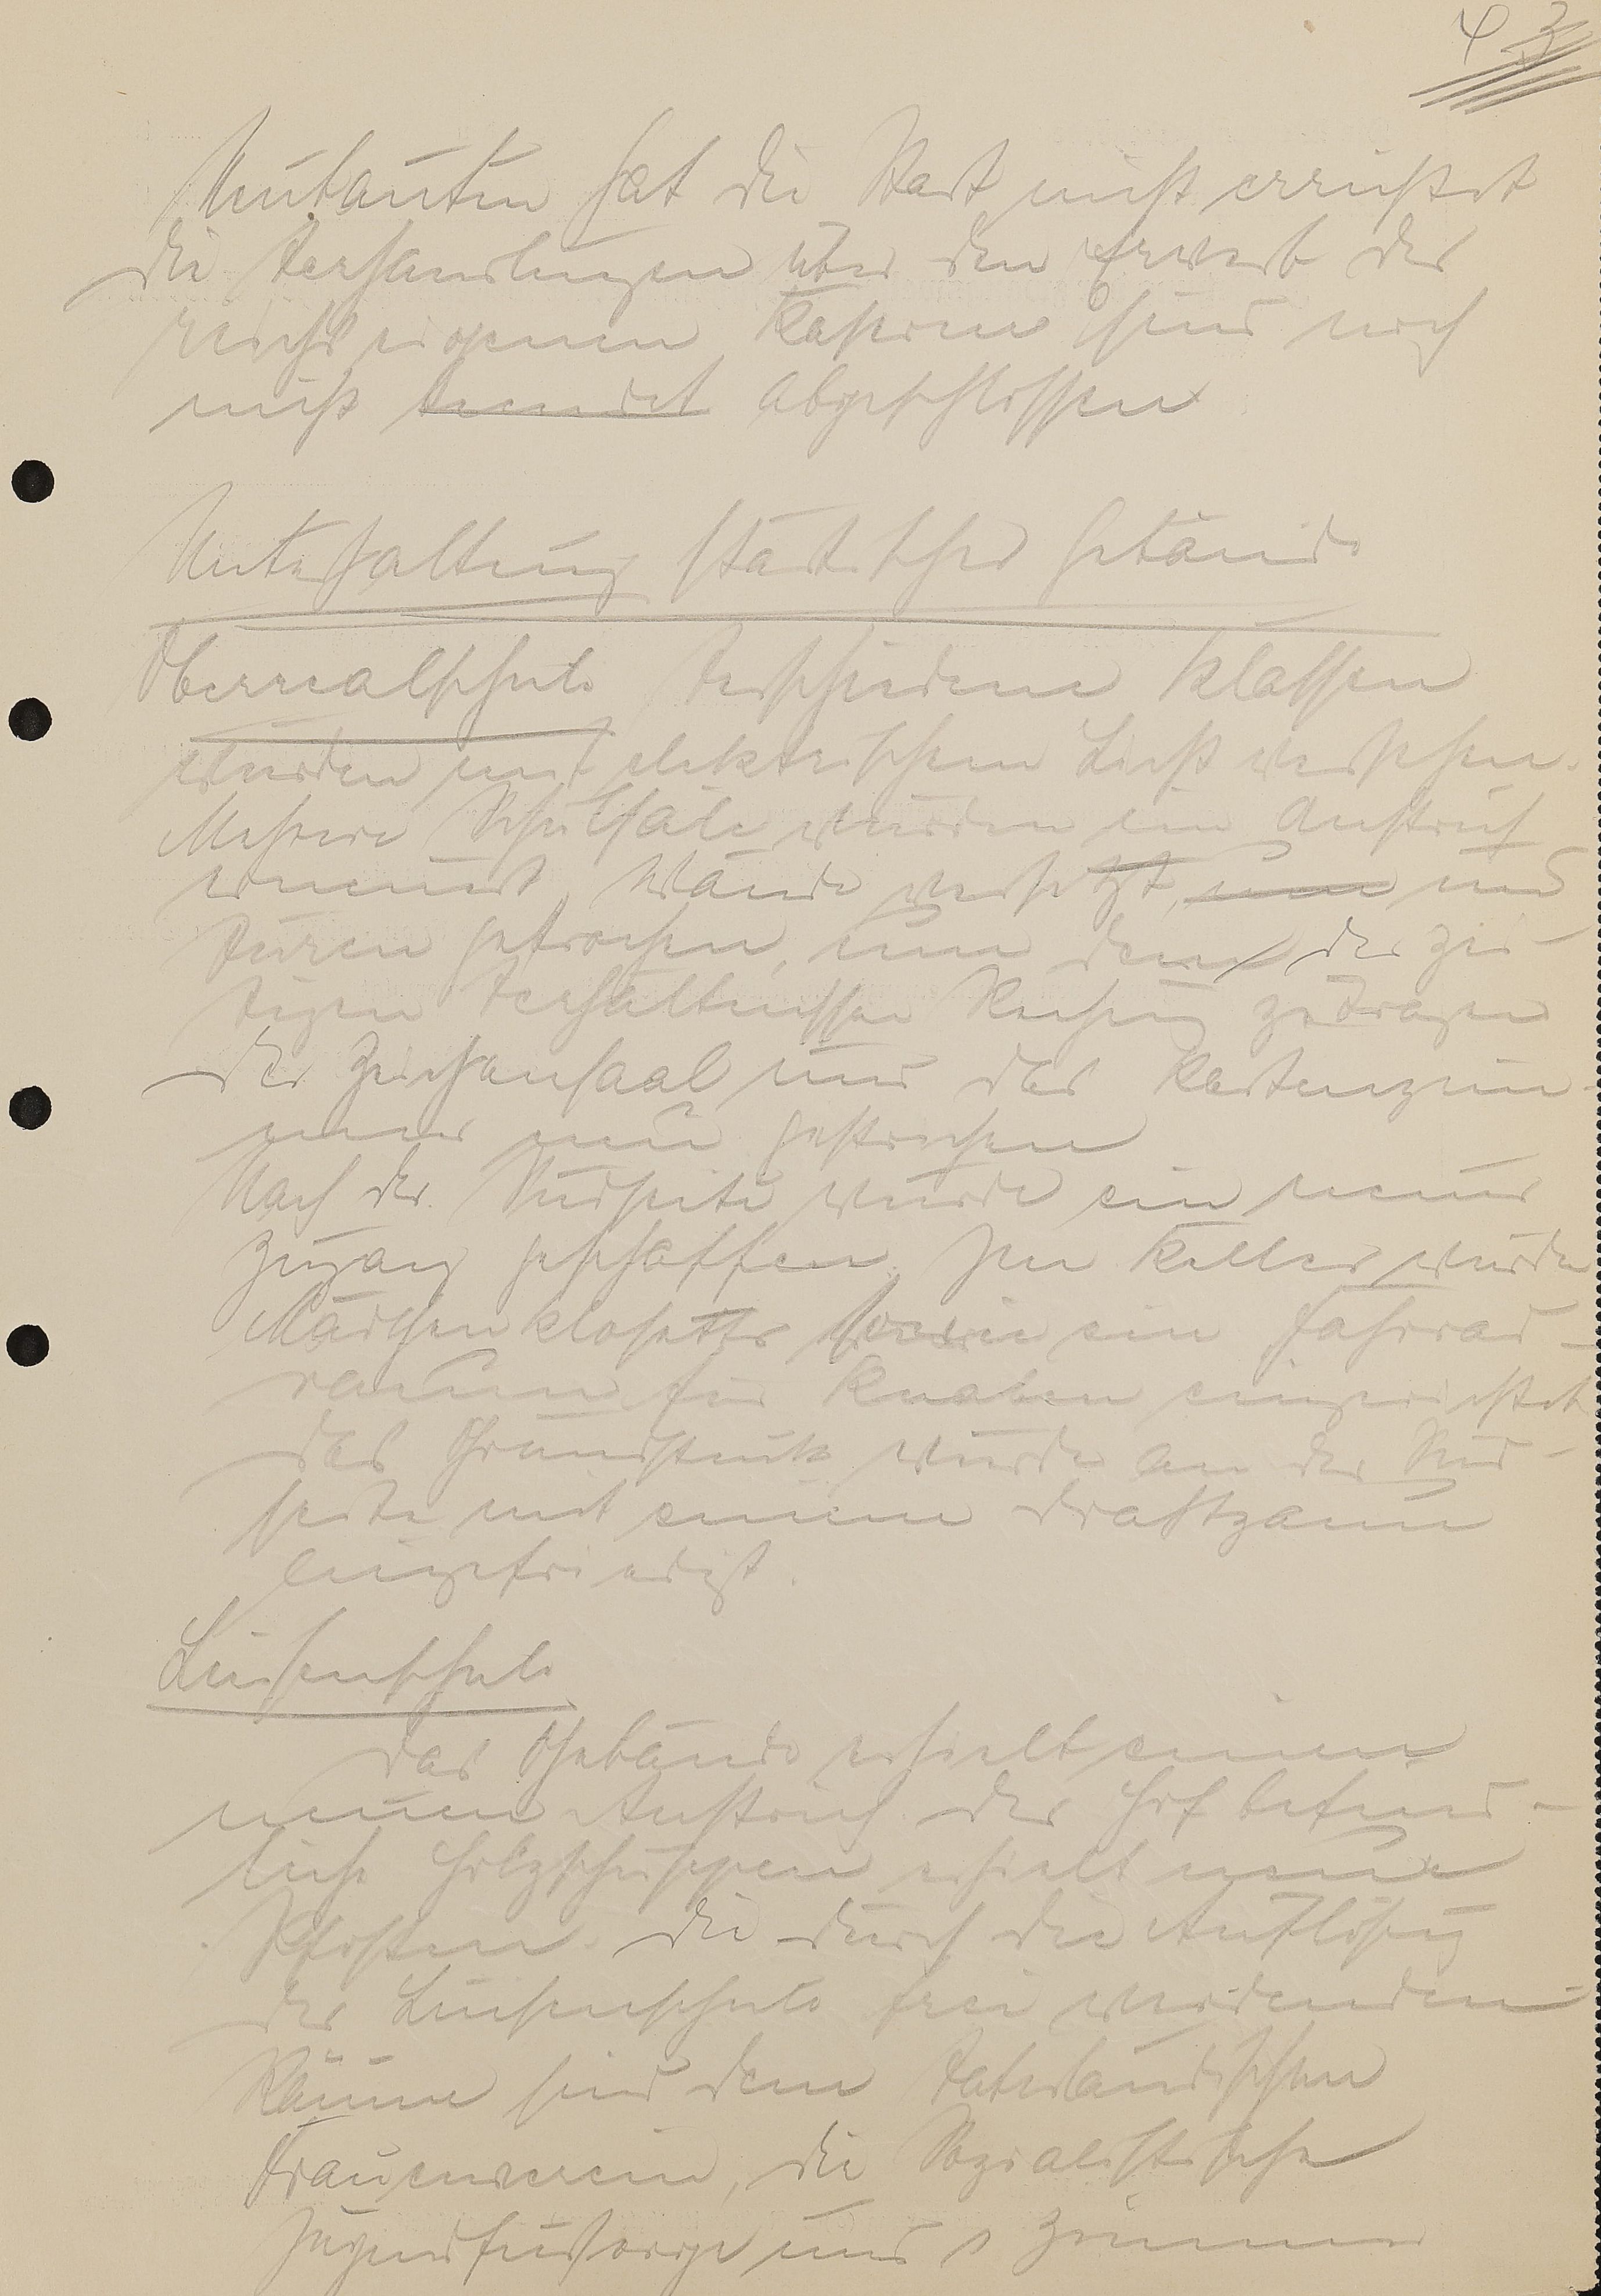 4 3
Neubauten hat die Stadt nicht errichtet
die Verhandlungen über den Erwerb der
reichseigenen Kaserne sind noch
nicht beendet abgeschlossen
Unterhaltung städtischer Gebäude
Oberrealschule Verschiedene Klassen
wurden mit elektrischem Licht versehen.
Mehrere Schulsäle wurden im Anstrich
erneuert, Wände versetzt, um und
Türen gebrochen, um den der zei-
tigen Verhältnissen Rechnung zu tragen
der Zeichensaal und das Kartenzim-
mer neu gestrichen
Nach der Südseite wurde ein neuer
Zugang geschaffen. Im Keller wurden
Mädchenklosetts sowie ein Fahrrad-
raum für Knaben eingerichtet
das Grundstück wurde an der Süd-
seite mit einem Drahtzaun
eingefriedigt.
Luisenschule
das Gebäude erhielt einen
neuen Anstrich der Hof befind-
liche Holzschuppen erhielt neue
Pfosten. die durch die Auflösung
der Luisenschule frei werdenden
Räume sind dem Vaterländischen
Frauenverein, die Sozialistische
Jugendfürsorge und Zimmer